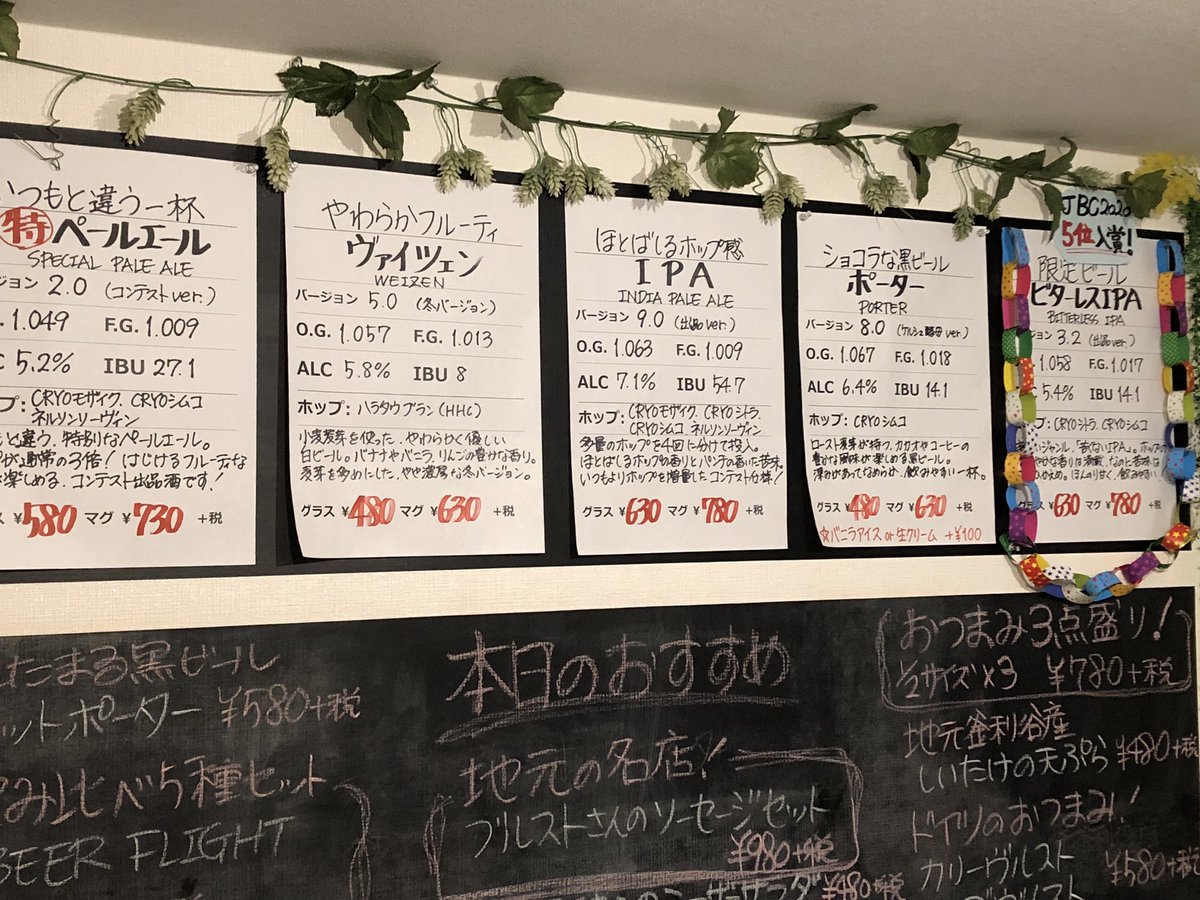 いつもと違う一杯
特ペールエール
SPECIAL PALE ALE
ジョン 2.0 (コンテストver.)
1.049 F.G. 1.009
5.2% IBU 27.1
プ: CRYOモザイク、CRYOシムコ
ネルソンソーヴィン
もと違う、特別なペールエール。
が通常の3倍! はじけるフルーティな
楽しめる、コンテスト出品酒です!
ラス ¥580 マグ ¥730 +税
やわらかフルーティ
ヴァイツェン
WEIZEN
バージョン 5.0 (冬バージョン)
O.G. 1.057 F.G. 1.013
ALC 5.8% IBU 8
ホップ: ハラタウブラン(HHC)
小麦麦芽を使った、やわらかく優しい
白ビール。バナナやバニラ、りんごの豊かな香り。
麦芽を多めにした、やや濃厚な冬バージョン。
グラス ¥480 マグ ¥630 +税
ほとばしるホップ感
IPA
INDIA PALE ALE
バージョン 9.0 (出品ver.)
O.G. 1.063 F.G. 1.009
ALC 7.1% IBU 54.7
ホップ: CRYOモザイク、CRYOシトラ、
CRYOシムコ、ネルソンソーヴィン
多量のホップを4回に分けて投入。
ほとばしるホップの香りとパンチの効いた苦味。
いつもよりホップを増量したコンテスト仕様!
グラス ¥630 マグ ¥780 +税
ショコラな黒ビール
ポーター
PORTER
バージョン 8.0 (ケルシュ酵母ver.)
O.G. 1.067 F.G. 1.018
ALC 6.4% IBU 14.1
ホップ: CRYOシムコ
ロースト麦芽が持つ、カカオやコーヒーの
豊かな風味が楽しめる黒ビール。
深みがあってなめらか、飲みやすい一杯。
グラス ¥480 マグ ¥630 +税
☆バニラアイス or 生クリーム +¥100
JBC2020
5位入賞!
限定ビール
ビターレスIPA
BITTERLESS IPA
ジョン 3.2 (出品ver.)
1.058 F.G. 1.017
5.4% IBU 14.1
プ: CRYOシトラ、CRYOシムコ
ジャンル、「苦くないIPA」。ホップの
¥630 マグ ¥780 +税
たまる黒ビール
ットポーター ¥580+税
み比べ5種セット
BEER FLIGHT
本日のおすすめ
地元の名店!
ブルストさんのソーセージセット
¥980+税
シーザーサラダ ¥480+税
おつまみ3点盛り!
½サイズ×3 ¥780+税
地元釜利谷産
しいたけの天ぷら ¥480+税
ドイツのおつまみ!
カリーヴルスト ¥580+税